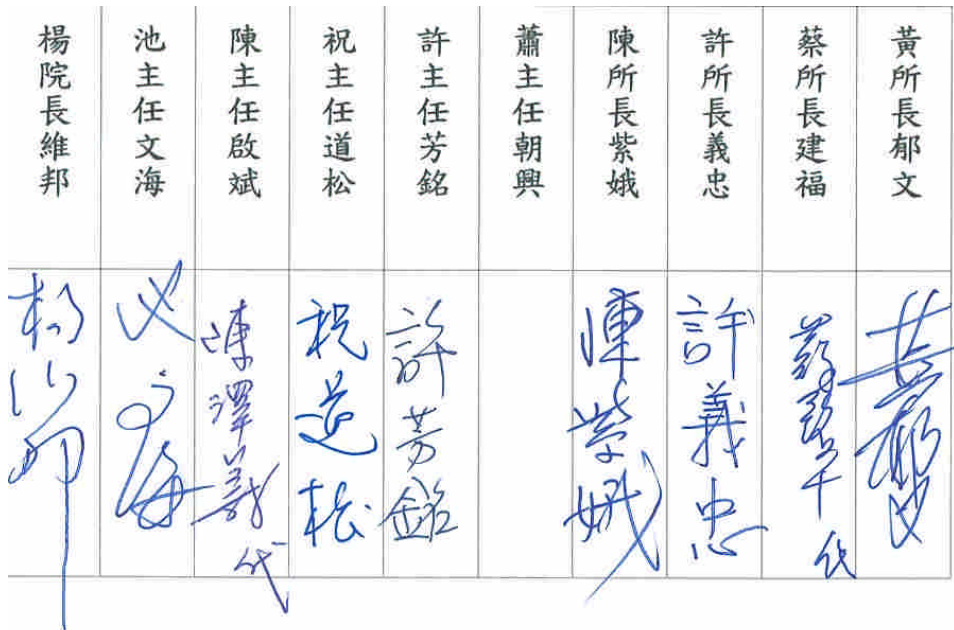 黃所長郁文
蔡所長建福
許所長義忠
陳所長紫娥
蕭主任朝興
許主任芳銘
祝主任道松
陳主任啟斌
池主任文海
楊院長維邦
黃郁文
代
許義忠
陳紫娥
許芳銘
祝道松
陳澤義代
池文海
楊維邦